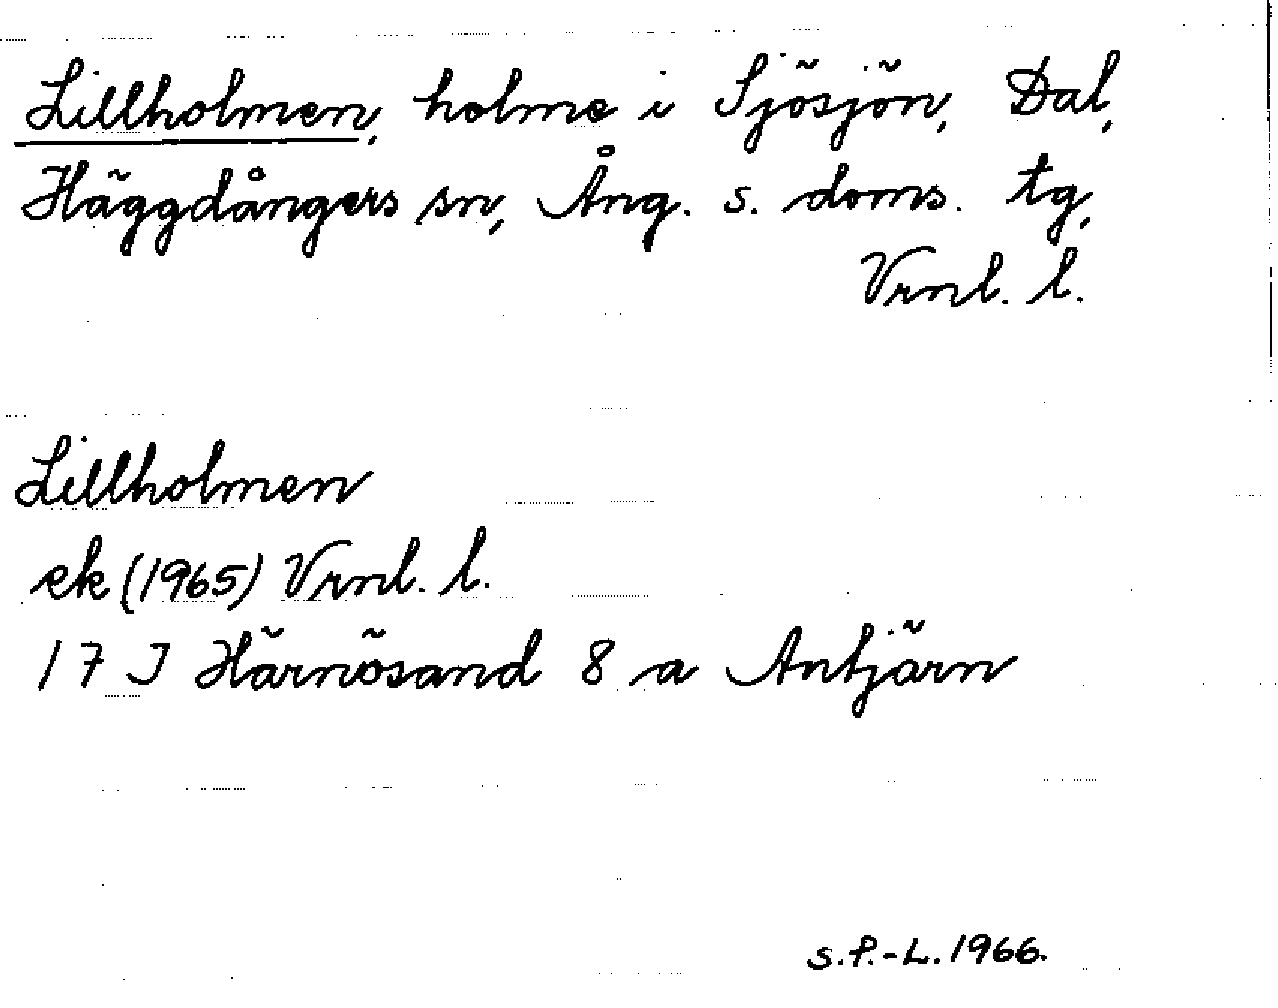 Lillholmen, holme i Sjösjön, Dal,
Häggdångers sn, Ång. s. doms. tg,
Vrnl. l.
Lillholmen
ek (1965) Vrnl. l.
17 J Härnösand 8 a Antjärn
s.P.-L. 1966.